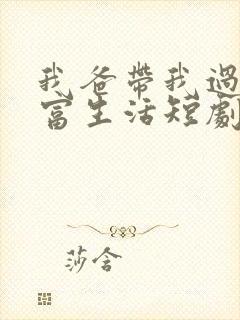 我爸帶我過
富生活短劇
莎含